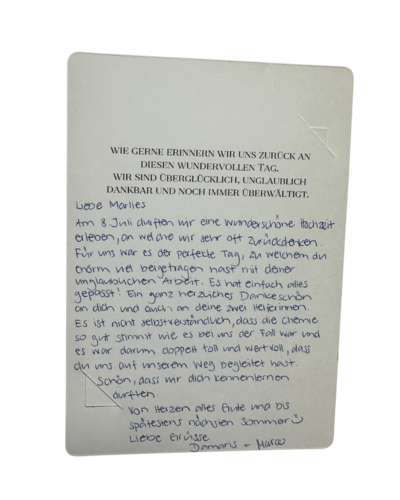 WIE GERNE ERINNERN WIR UNS ZURÜCK AN
DIESEN WUNDERVOLLEN TAG.
WIR SIND ÜBERGLÜCKLICH, UNGLAUBLICH
DANKBAR UND NOCH IMMER ÜBERWÄLTIGT.
Liebe Marlies
Am 8. Juli durften wir eine wunderschöne Hochzeit
erleben, an welche wir sehr oft zurückdenken.
Für uns war es der perfekte Tag, zu welchem du
enorm viel beigetragen hast mit deiner
unglaublichen Arbeit. Es hat einfach alles
gepasst! Ein ganz herzliches Dankeschön
an dich und auch an deine zwei Helferinnen.
Es ist nicht selbstverständlich, dass die Chemie
so gut stimmt wie es bei uns der Fall war und
es war darum doppelt toll und wertvoll, dass
du uns auf unserem Weg begleitet hast.
Schön, dass wir dich kennenlernen
durften.
Von Herzen alles Gute und bis
spätestens nächsten Sommer
Liebe Grüsse
Damaris + Marco